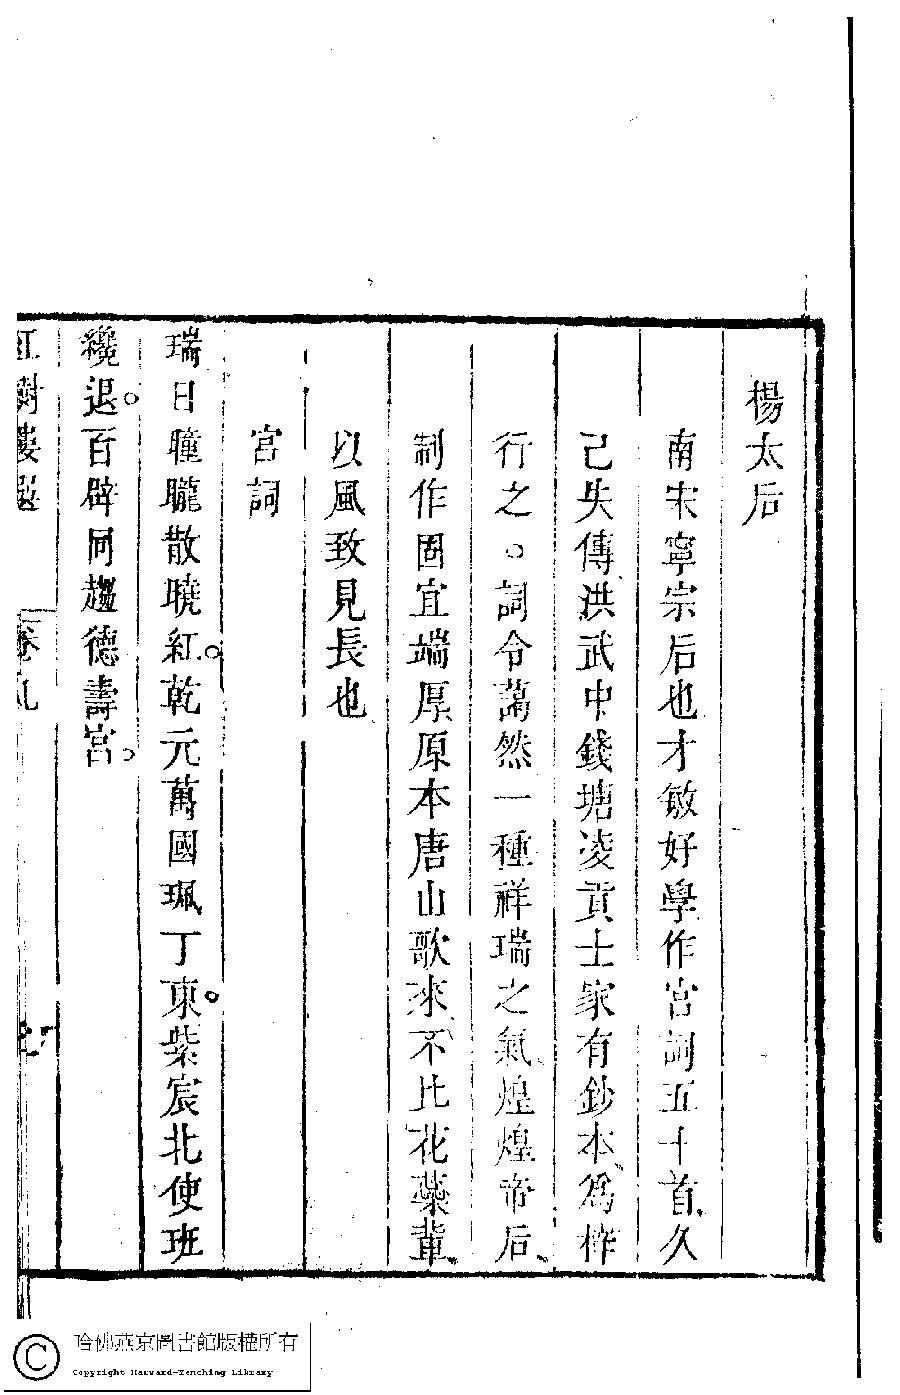 楊太后
南宋寧宗后也才敏好學作宮詞五十首久
已失傳洪武中錢塘凌貢士家有鈔本爲梓
行之。詞令藹然一種祥瑞之氣煌煌帝后
制作固宜端厚原本唐山歌來不比花藥輩
以風致見長也
宮詞
瑞日曈曨散曉紅。乾元萬國珮丁東。紫宸北使班
纔退。百辟同趨德壽宮。
紅樹樓選 卷九
哈佛燕京圖書館版權所有
Copyright Harvard-Yenching Library